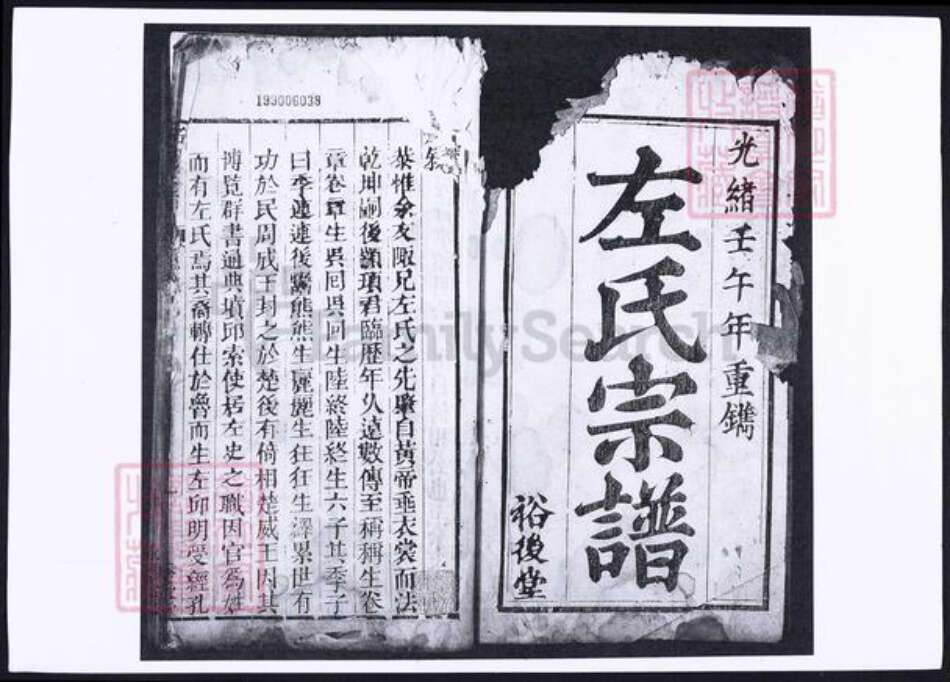 光緒壬午年重鐫
左氏宗譜
裕後堂
193006038
恭惟余友陬兄左氏之先肇自黃帝垂衣裳而法
乾坤嗣後顓頊君臨歷年久遠數傳至稱稱生卷
章卷章生吳回吳回生陸終陸終生六子其季子
曰季連連後鬻熊熊生麗麗生狂狂生繹累世有
功於民周成王封之於楚後有倚相楚威王因其
博覽群書通典墳邱索使居左史之職因官爲姓
而有左氏焉其裔轉仕於魯而生左邱明受經孔
FamilySearch